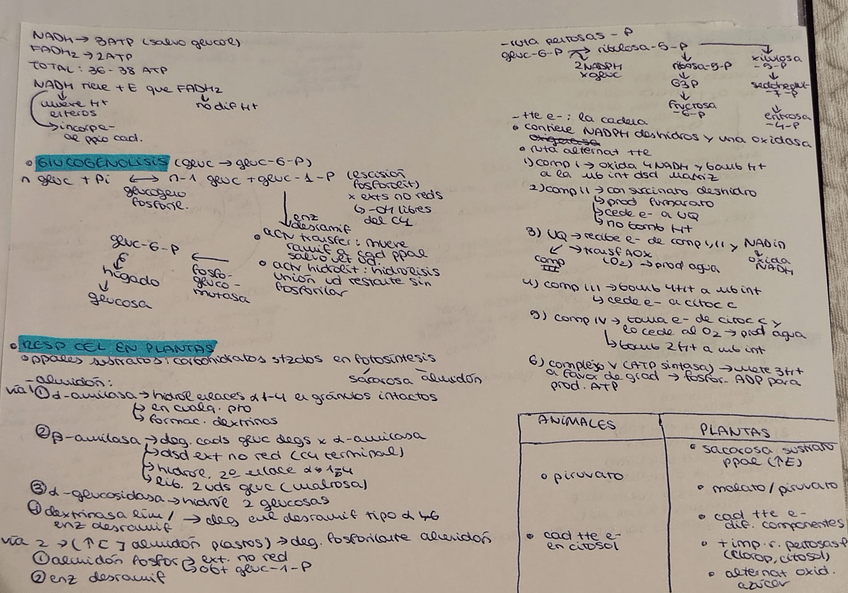 NADH → 3ATP (salvo glucol)
FADH2 → 2ATP
TOTAL: 36-38 ATP
NADH tiene +E que FADH2
mueve H+ → no dif H+
enteros
→ incorpo-
al ppio cad.
• GLUCOGENOLISIS (gluc → gluc-6-P)
n gluc + Pi ↔ n-1 gluc + gluc-1-P (escisión
glucogeno fosforilit)
fosforil. x exts no reds
↳ -OH libres
del C4
enz
desramif
• activ transfer: mueve
ramif et cad ppal
salvo ult ud.
• activ hidrolit: hidrolisis
unión ud restante sin
fosforilar
gluc-6-P ← fosfo-
gluco-
mutasa
hígado
glucosa
• RESP CEL EN PLANTAS
• ppales sustratos: carbohidratos stzdos en fotosíntesis
sacarosa almidón
- almidón:
vía 1 ① α-amilasa → hidrol enlaces α1-4 en gránulos intactos
↳ en cualq. pto
↳ formac. dextrinas
② β-amilasa → deg. cads gluc degs x α-amilasa
↳ dsd ext no red (C4 terminal)
↳ hidrol. 2º enlace α 1→4
↳ lib. 2 uds gluc (maltosa)
③ α-glucosidasa → hidrol 2 glucosas
④ dextrinasa lím/ → deg enl desramif tipo α 1-6
enz desramif
vía 2 → (↑[ ] almidón plastos) → deg. fosforilante almidón
① almidón fosfor → ext. no red
↳ obt gluc-1-P
② enz desramif
- ruta pentosas-P
gluc-6-P → ribulosa-5-P → xilulosa
-5-P
2NADPH
x gluc
ribosa-5-P
sedoheptul
-7-P
G3P
fructosa
-6-P
eritrosa
-4-P
- tte e-: la cadena
• contiene NADPH deshidros y una oxidasa
• ruta alternat tte
1) comp I → oxida 4NADH y bomb H+
a la mb int dsd matriz
2) comp II → con succinato deshidro
↳ prod fumarato
↳ cede e- a UQ
↳ no bomb H+
3) UQ → recibe e- de comp I, II y NADin
→ transf AOX oxida
comp (O2) → prod agua NADH
III
4) comp III → bomb 4H+ a mb int
↳ cede e- a citoc c
5) comp IV → toma e- de citoc c y
lo cede al O2 → prod agua
↳ bomb 2H+ a mb int
6) complejo V (ATP sintasa) → mete 3H+
a favor de grad → fosfor. ADP para
prod. ATP
ANIMALES
PLANTAS
• piruvato
• cad tte e-
en citosol
• sacarosa sustrato
ppal (↑E)
• malato/piruvato
• cad tte e-
dif. componentes
• + imp. r. pentosas-P
(clorop, citosol)
• alternat oxid.
azúcar